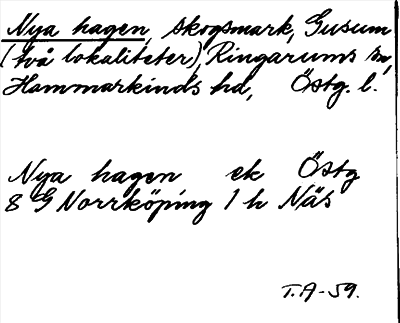 Nya hagen, skogsmark, Gusum
(två lokaliteter), Ringarums sn,
Hammarkinds hd, Östg. l.
Nya hagen ek Östg
8 G Norrköping 1 h Näs
T.A-59.